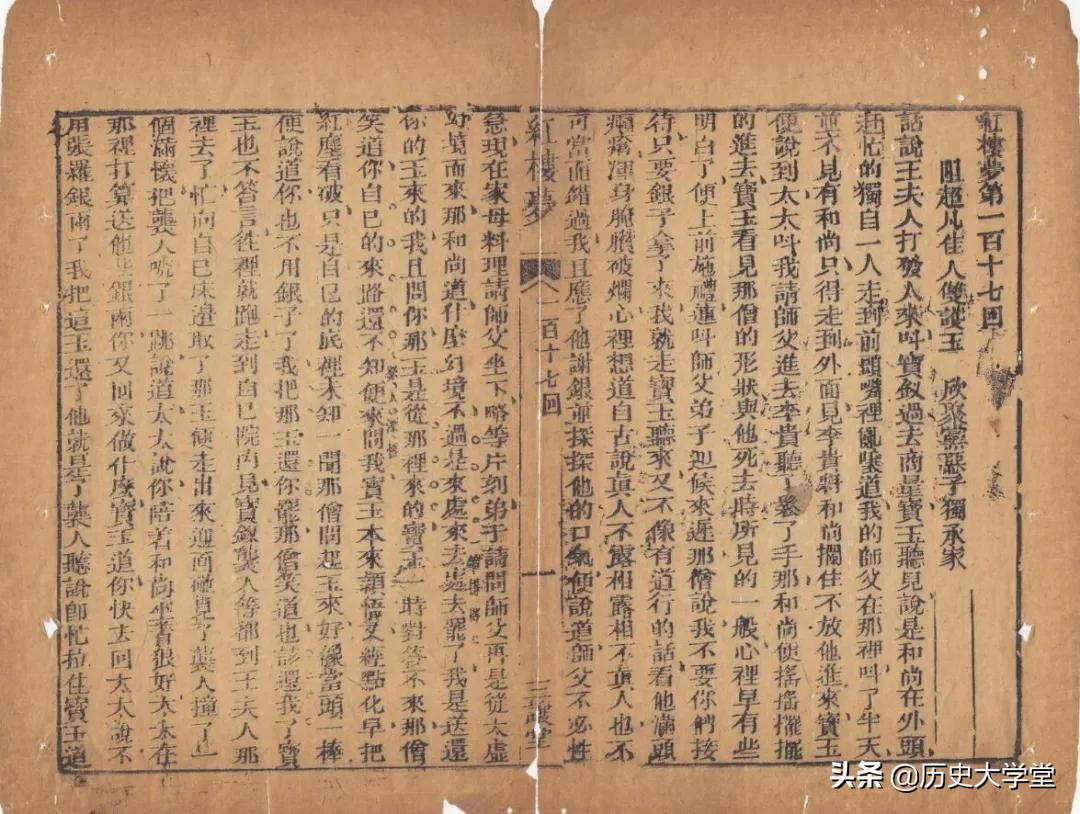 紅樓夢第一百十七回
阻超凡佳人雙護玉　欣聚黨惡子獨承家
話說王夫人打發人來叫寶釵過去商量寶玉聽見說是和尚在外頭
赶忙的獨自一人走到前頭嘴裡亂嚷道我的師父在那裡叫了半天
並不見有和尚只得走到外面見李貴將和尚攔住不放他進來寶玉
便說到太太叫我請師父進去李貴聽了鬆了手那和尚便搖搖擺擺
的進去寶玉看見那僧的形狀與他死去時所見的一般心裡早有些
明白了便上前施禮連叫師父弟子迎候來遲那僧說我不要你們接
待只要銀子拿了來我就走寶玉聽來又不像有道行的話看他滿頭
癩瘡渾身腌臢破爛心裡想道自古說真人不露相露相不真人也不
可當面錯過我且應了他謝銀並探探他的口氣便說道師父不必性
紅樓夢　一百十七回　一　三讓堂
急現在家母料理請師父坐下略等片刻弟子請問師父再是從太虛
好境而來那和尚道什麼幻境不過是來處來去處去罷了我是送還
你的玉來的我且問你那玉是從那裡來的寶玉一時對答不來那僧
笑道你自已的來路還不知便來問我寶玉本來穎悟又經點化早把
紅塵看破只是自已的底裡未知一聞那僧問起玉來好像當頭一棒
便說道你也不用銀子了我把那玉還你罷那僧笑道也該還我了寶
玉也不答言徃裡就跑走到自已院內見寶釵襲人等都到王夫人那
裡去了忙向自已床邊取了那玉便走出來迎面碰見了襲人撞了一
個滿懷把襲人唬了一跳說道太太說你陪着和尚坐着狠好太太在
那裡打算送他些銀兩你又回來做什麼寶玉道你快去回太太說不
用張羅銀兩了我把這玉還了他就是了襲人聽說即忙拉住寶玉道
头条 @历史大学堂